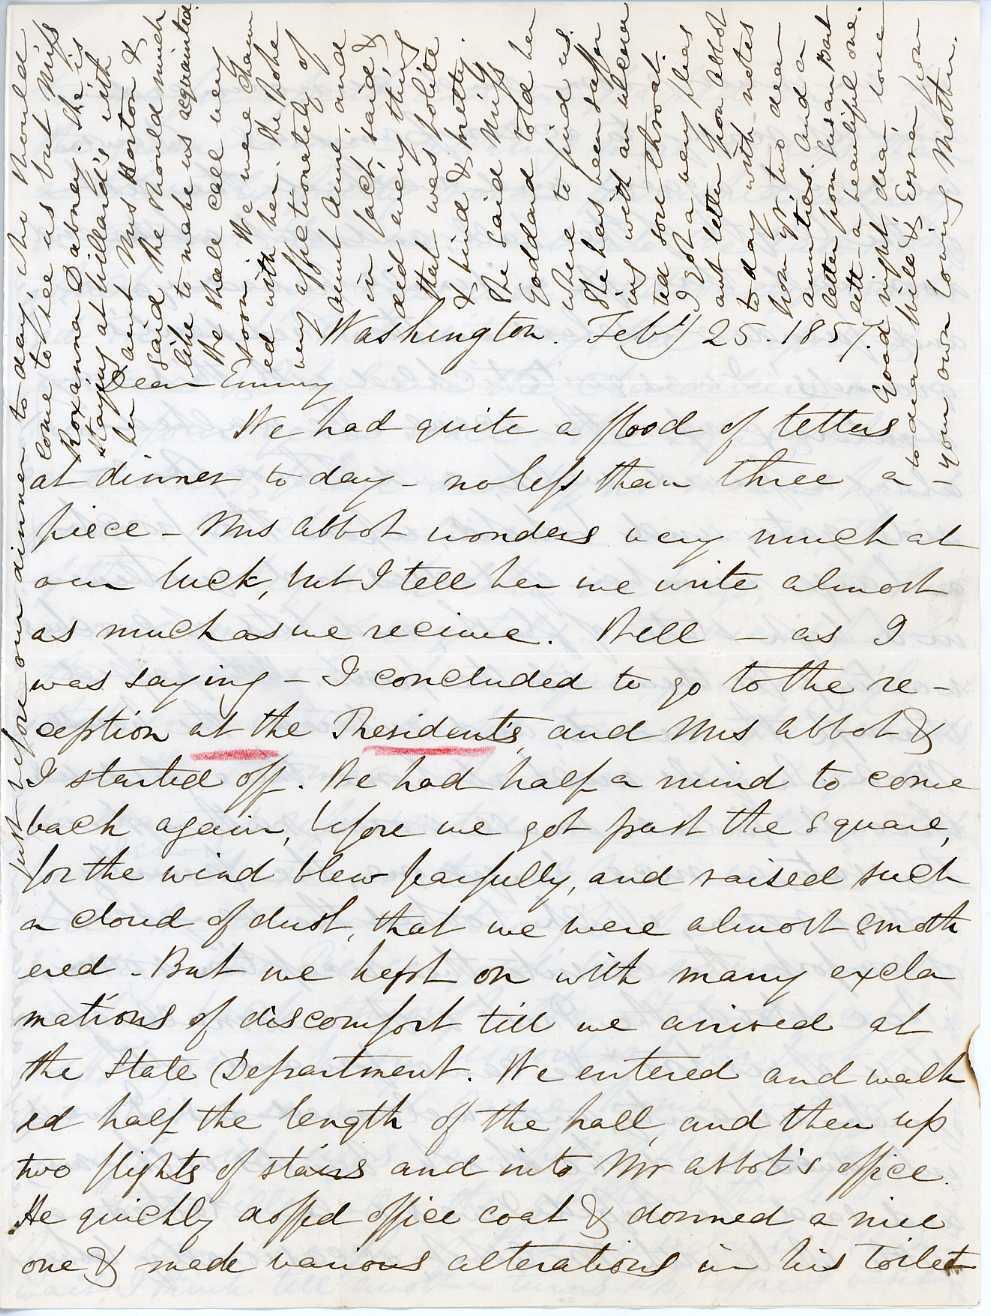 Washington. Feby 25. 1857.
Dear Emmy
We had quite a flood of letters
at dinner to day – no less than three a-
piece – Mrs Abbot wonders very much at
our luck, but I tell her we write almost
as much as we recieve. Well – as I
was saying – I concluded to go to the re-
ception at the President's, and Mrs Abbot &
I started off. We had half a mind to come
back again, before we got past the square,
for the wind blew fearfully, and raised such
a cloud of dust, that we were almost smoth
ered – But we kept on with many excla
mations of discomfort till we arrived at
the State Department. We entered and walk
ed half the length of the hall, and then up
two flights of stairs and into Mr Abbot's office.
He quickly doffed office coat & donned a nice
one & made various alterations in his toilet
just before our dinner to day, who should
come to see us but Miss
Roxanna Dabney. She is
staying at Willard's with
her aunt Mrs Horton &
said she should much
like to make us acquainted.
We shall call very
soon. We were charm
ed with her. She spoke
very affectionately of
Aunt Annie and
in fact, said &
did every thing
that was polite
& kind & pretty.
She said Miss
Goddard told her
where to find us.
She has been suffer
ing with an ulcera
ted sore throat.
I got a very pleas
ant letter from Abbot
to day with notes
from yr two dear
aunties. And a
letter from husand but
ditt – a beautiful one.
Good night, dear, love
to dear Will & Ezra from
your own loving Mother.